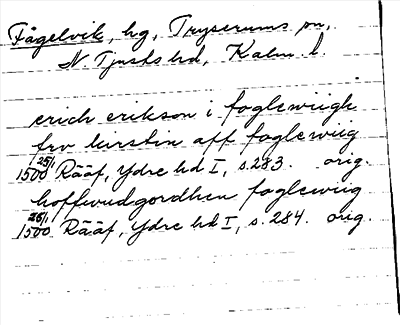 Fågelvik, hg, Tryserums sn,
N. Tjusts hd, Kalm. l.
erich erikson i foglewiigh
frv kirstin aff foglewiig
25/1 1500 Rääf, Ydre hd I, s. 283. orig.
hoffwudgordhen foglewiig
25/1 1500. Rääf, Ydre hd I, s. 284. orig.